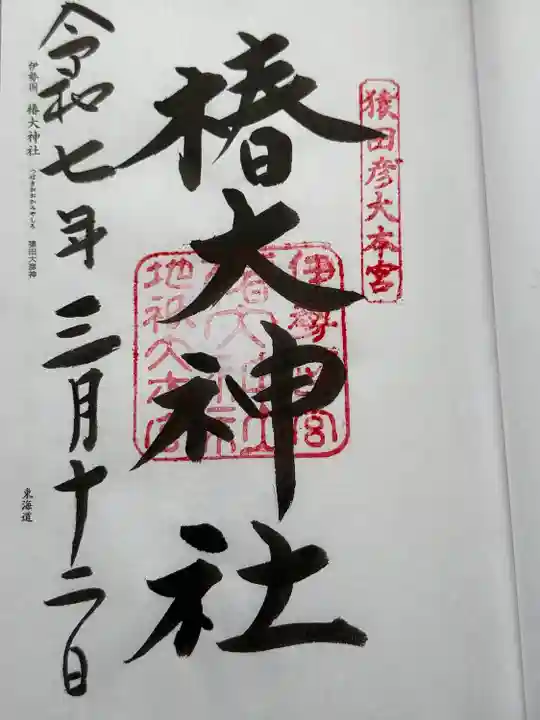 猿田彦大本宮
椿大神社
伊勢一宮
地祇大本宮
令和七年三月十二日
伊勢国 椿大神社 つばきおおかみやしろ 猿田大神
東海道